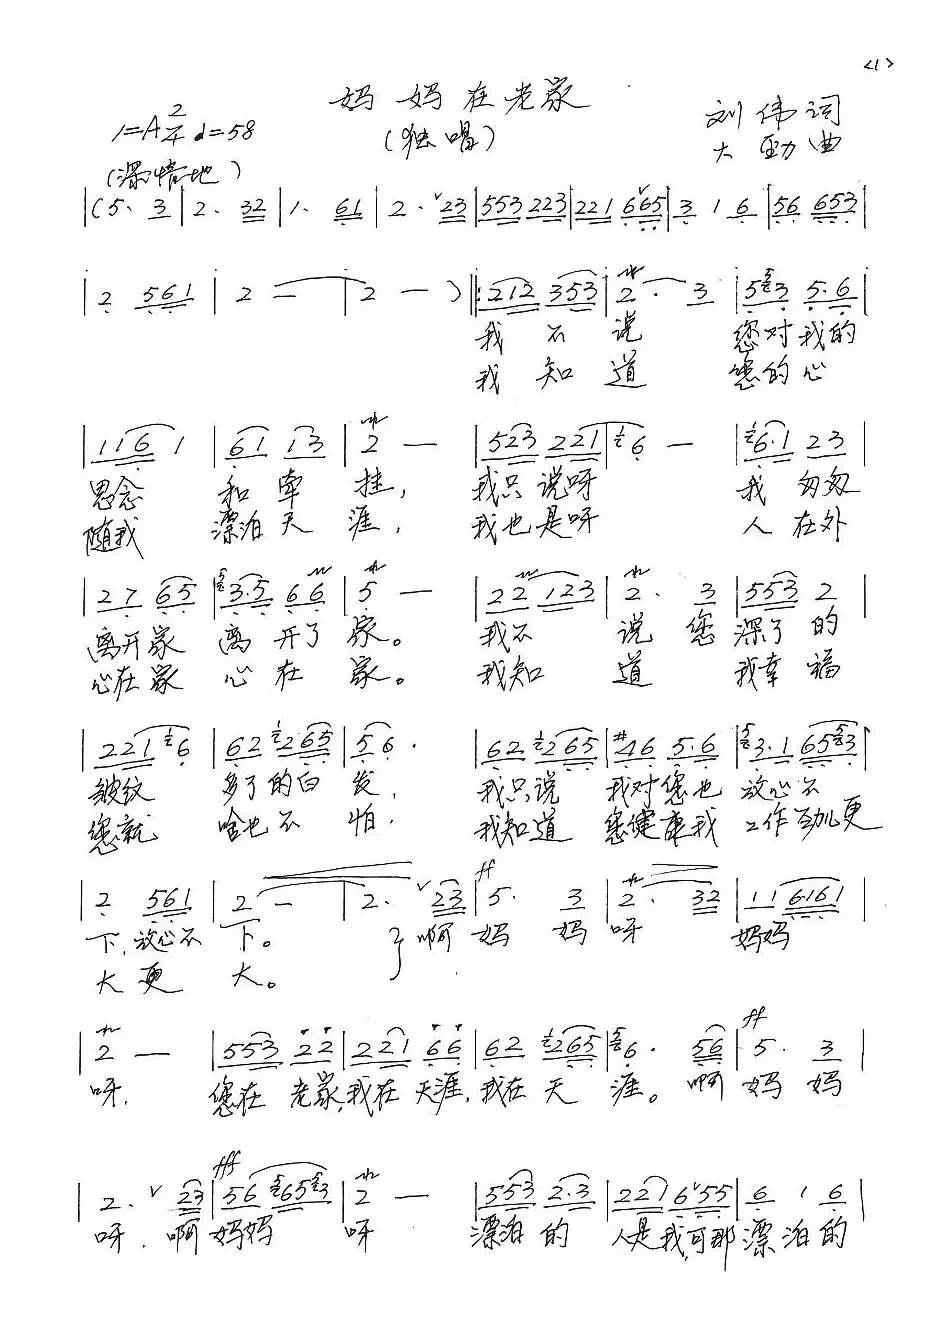 <1>
妈妈在老家
1=A 2/4 ♩=58
(独唱)
刘伟词
大勁曲
(深情地)
|(5. 3|2. 32|1. 61|2. ᵛ23|553 223|221 6ᵛ65|3 1 6|56 653|
|2 561|2 —|2 —)‖:212 353|2. 3|553 5.6|
我不说 您对我的
我知道 您的心
|116 1|61 13|2 —|523 221|6 —|6.1 23|
思念 和牵挂, 我只说呀 我匆匆
随我 漂泊天涯, 我也是呀 人在外
|27 65|3.5 66|5 —|22 123|2. 3|553 2|
离开家 离开了家。 我不说您深了的
心在家 心在家。 我知道 我幸福
|221 6|62 265|56.|62 265|#46 5.6|3.1 653|
皱纹 多了的白发, 我只说 我对您也 放心不
您就 啥也不怕. 我知道 您健康我 工作劲儿更
ff
|2 561|2 —|2. ᵛ23|5. 3|2. 32|11 6161|
下,放心不下。 啊妈妈呀 妈妈
大更大。
ff
|2 —|553 22|221 66|62 265|6. 56|5. 3|
呀, 您在老家,我在天涯,我在天涯。啊妈妈
fff
|2. ᵛ23|56 6553|2 —|553 2.3|221 6ᵛ55|6 1 6|
呀, 啊妈妈呀 漂泊的人是我,可那漂泊的